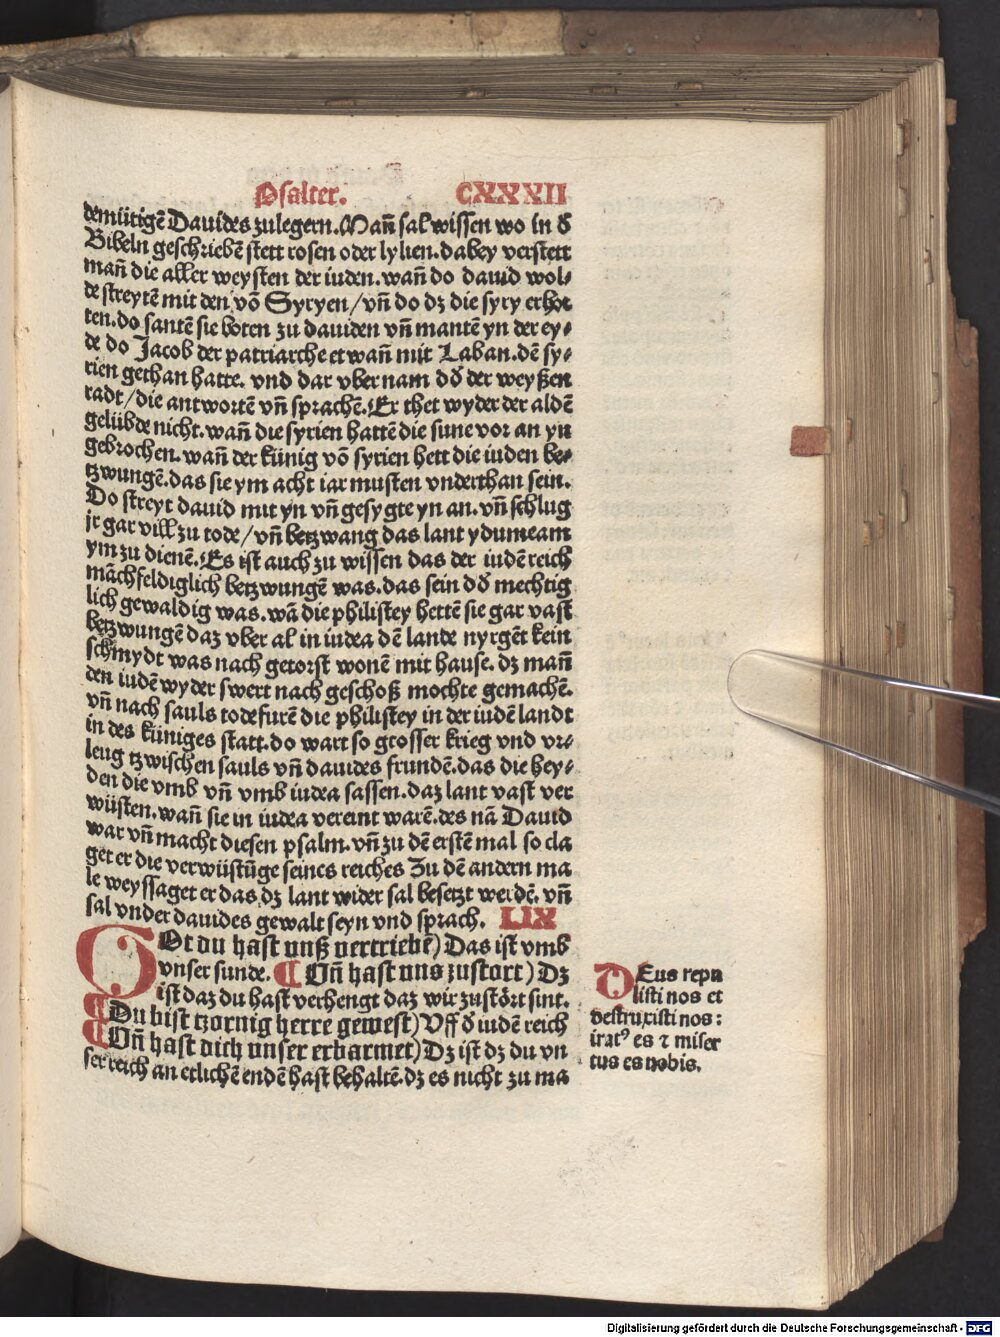 Psalter. CXXXII
demütigē Dauides zulegern. Mañ sal wissen wo in ð
Bibeln geschriebē stett rosen oder lylien. dabey verstett
mañ die aller weysten der iuden. wañ do dauid wol⸗
de streytē mit den võ Syryen / vñ do dz die syry erhor
ten. do santē sie boten zu dauiden vñ mantē yn der ey⸗
de do Jacob der patriarche etwañ mit Laban. dē sy⸗
rien gethan hatte. vnd dar vber nam dð der weyßen
radt / die antwortē vñ sprachē. Er thet wyder der aldē
gelübde nicht. wañ die syrien hattē die sune vor an yn
gebrochen. wañ der künig võ syrien hett die iuden be⸗
tzwungē. das sie ym acht iar musten vnderthan sein.
Do streyt dauid mit yn vñ gesygte yn an. vñ schlug
jr gar vill zu tode / vñ betzwang das lant ydumeam
ym zu dienē. Es ist auch zu wissen das der iudē reich
māchfeldiglich betzwungē was. das sein dð mechtig
lich gewaldig was. wā die philistey hettē sie gar vast
betzwungē daz vber al in iudea dē lande nyrgēt kein
schmydt was nach getorst wonē mit hause. dz mañ
den iudē wyder swert nach geschoß mochte gemachē.
vñ nach sauls tode furē die philistey in der iudē landt
in des küniges statt. do wart so grosser krieg vnd vr⸗
leug tzwischen sauls vñ dauides frundē. das die hey⸗
den die vmb vñ vmb iudea sassen. daz lant vast ver
wüsten. wañ sie in iudea vereint warē. des nā Dauid
war vñ macht diesen psalm. vñ zu dē erstē mal so cla
get er die verwüstūge seines reiches Zu dē andern ma
le weyssaget er das, dz lant wider sal besetzt werdē. vñ
sal vnder dauides gewalt seyn vnd sprach. LIX
GOt du hast vnß vertriebē) Das ist vmb
vnser sunde. ¶ Vñ hast vns zustort) Dz
ist daz du hast verhengt daz wir zustört sint.
¶ Du bist tzornig herre gewest) Vff ð iudē reich
¶ Vñ hast dich vnser erbarmet) Dz ist dz du vn
ser reich an etlichē endē hast behaltē. dz es nicht zu ma
DEus repu
listi nos et
destruxisti nos:
iratꝰ es ⁊ miser
tus es nobis.
Digitalisierung gefördert durch die Deutsche Forschungsgemeinschaft - DFG